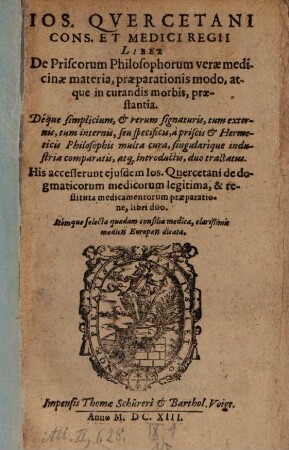 IOS. QVERCETANI
CONS. ET MEDICI REGII
LIBER
De Priscorum Philosophorum veræ medi-
cinæ materia, præparationis modo, at-
que in curandis morbis, præ-
stantia.
Déque simplicium, & rerum signaturis, tum exter-
nis, tum internis, seu specificis, à priscis & Herme-
ticis Philosophis multa cura, singularique indu-
stria comparatis, atq, introductis, duo tractatus.
His accesserunt ejusdem Ios. Quercetani de do-
gmaticorum medicorum legitima, & re-
stituta medicamentorum præparatio-
ne, libri duo.
Itémque selecta quædam consilia medica, clarissimis
medicis Europæis dicata.
Impensis Thomæ Schüreri & Barthol. Voigt.
Anno M. DC. XIII.